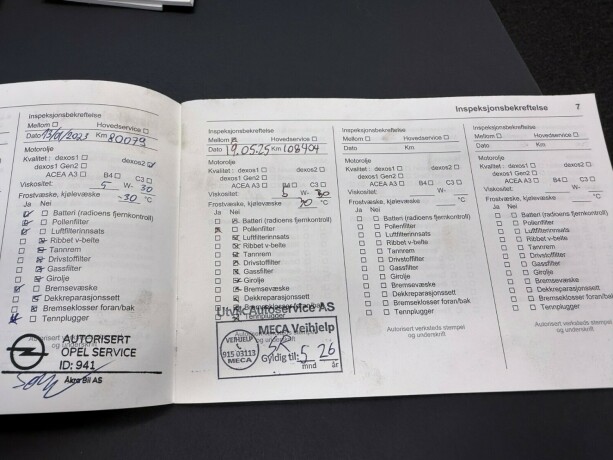 Inspeksjonsbekreftelse 7
Mellom Hovedservice
Dato 13/01/2023 Km 80079
Motorolje
Kvalitet: dexos1 dexos2
dexos1 Gen2
ACEA A3 B4 C3
Viskositet: 5 W- 30
Frostvæske, kjølevæske -30 °C
Ja Nei
Batteri (radioens fjernkontroll)
Pollenfilter
Luftfilterinnsats
Ribbet v-belte
Tannrem
Drivstoffilter
Gassfilter
Girolje
Bremsevæske
Dekkreparasjonssett
Bremseklosser foran/bak
Tennplugger
AUTORISERT
OPEL SERVICE
ID: 941
Åkra Bil AS
Inspeksjonsbekreftelse
Mellom Hovedservice
Dato 19.05.25 Km 108904
Motorolje
Kvalitet: dexos1 dexos2
dexos1 Gen2
ACEA A3 B4 C3
Viskositet: 5 W- 30
Frostvæske, kjølevæske °C
Ja Nei
Batteri (radioens fjernkontroll)
Pollenfilter
Luftfilterinnsats
Ribbet v-belte
Tannrem
Drivstoffilter
Gassfilter
Girolje
Bremsevæske
Dekkreparasjonssett
Bremseklosser foran/bak
Tennplugger
Utvik Autoservice AS
MECA Veihjelp
VEIHJELP
915 03113
MECA
Gyldig til: 5 26
mnd år
Inspeksjonsbekreftelse
Mellom Hovedservice
Dato Km
Motorolje
Kvalitet: dexos1 dexos2
dexos1 Gen2
ACEA A3 B4 C3
Viskositet: W-
Frostvæske, kjølevæske °C
Ja Nei
Batteri (radioens fjernkontroll)
Pollenfilter
Luftfilterinnsats
Ribbet v-belte
Tannrem
Drivstoffilter
Gassfilter
Girolje
Bremsevæske
Dekkreparasjonssett
Bremseklosser foran/bak
Tennplugger
Autorisert verksteds stempel
og underskrift
Inspeksjonsbekreftelse
Mellom Hovedservice
Dato Km
Motorolje
Kvalitet: dexos1 dexos2
dexos1 Gen2
ACEA A3 B4 C3
Viskositet: W-
Frostvæske, kjølevæske °C
Ja Nei
Batteri (radioens fjernkontroll)
Pollenfilter
Luftfilterinnsats
Ribbet v-belte
Tannrem
Drivstoffilter
Gassfilter
Girolje
Bremsevæske
Dekkreparasjonssett
Bremseklosser foran/bak
Tennplugger
Autorisert verksteds stempel
og underskrift